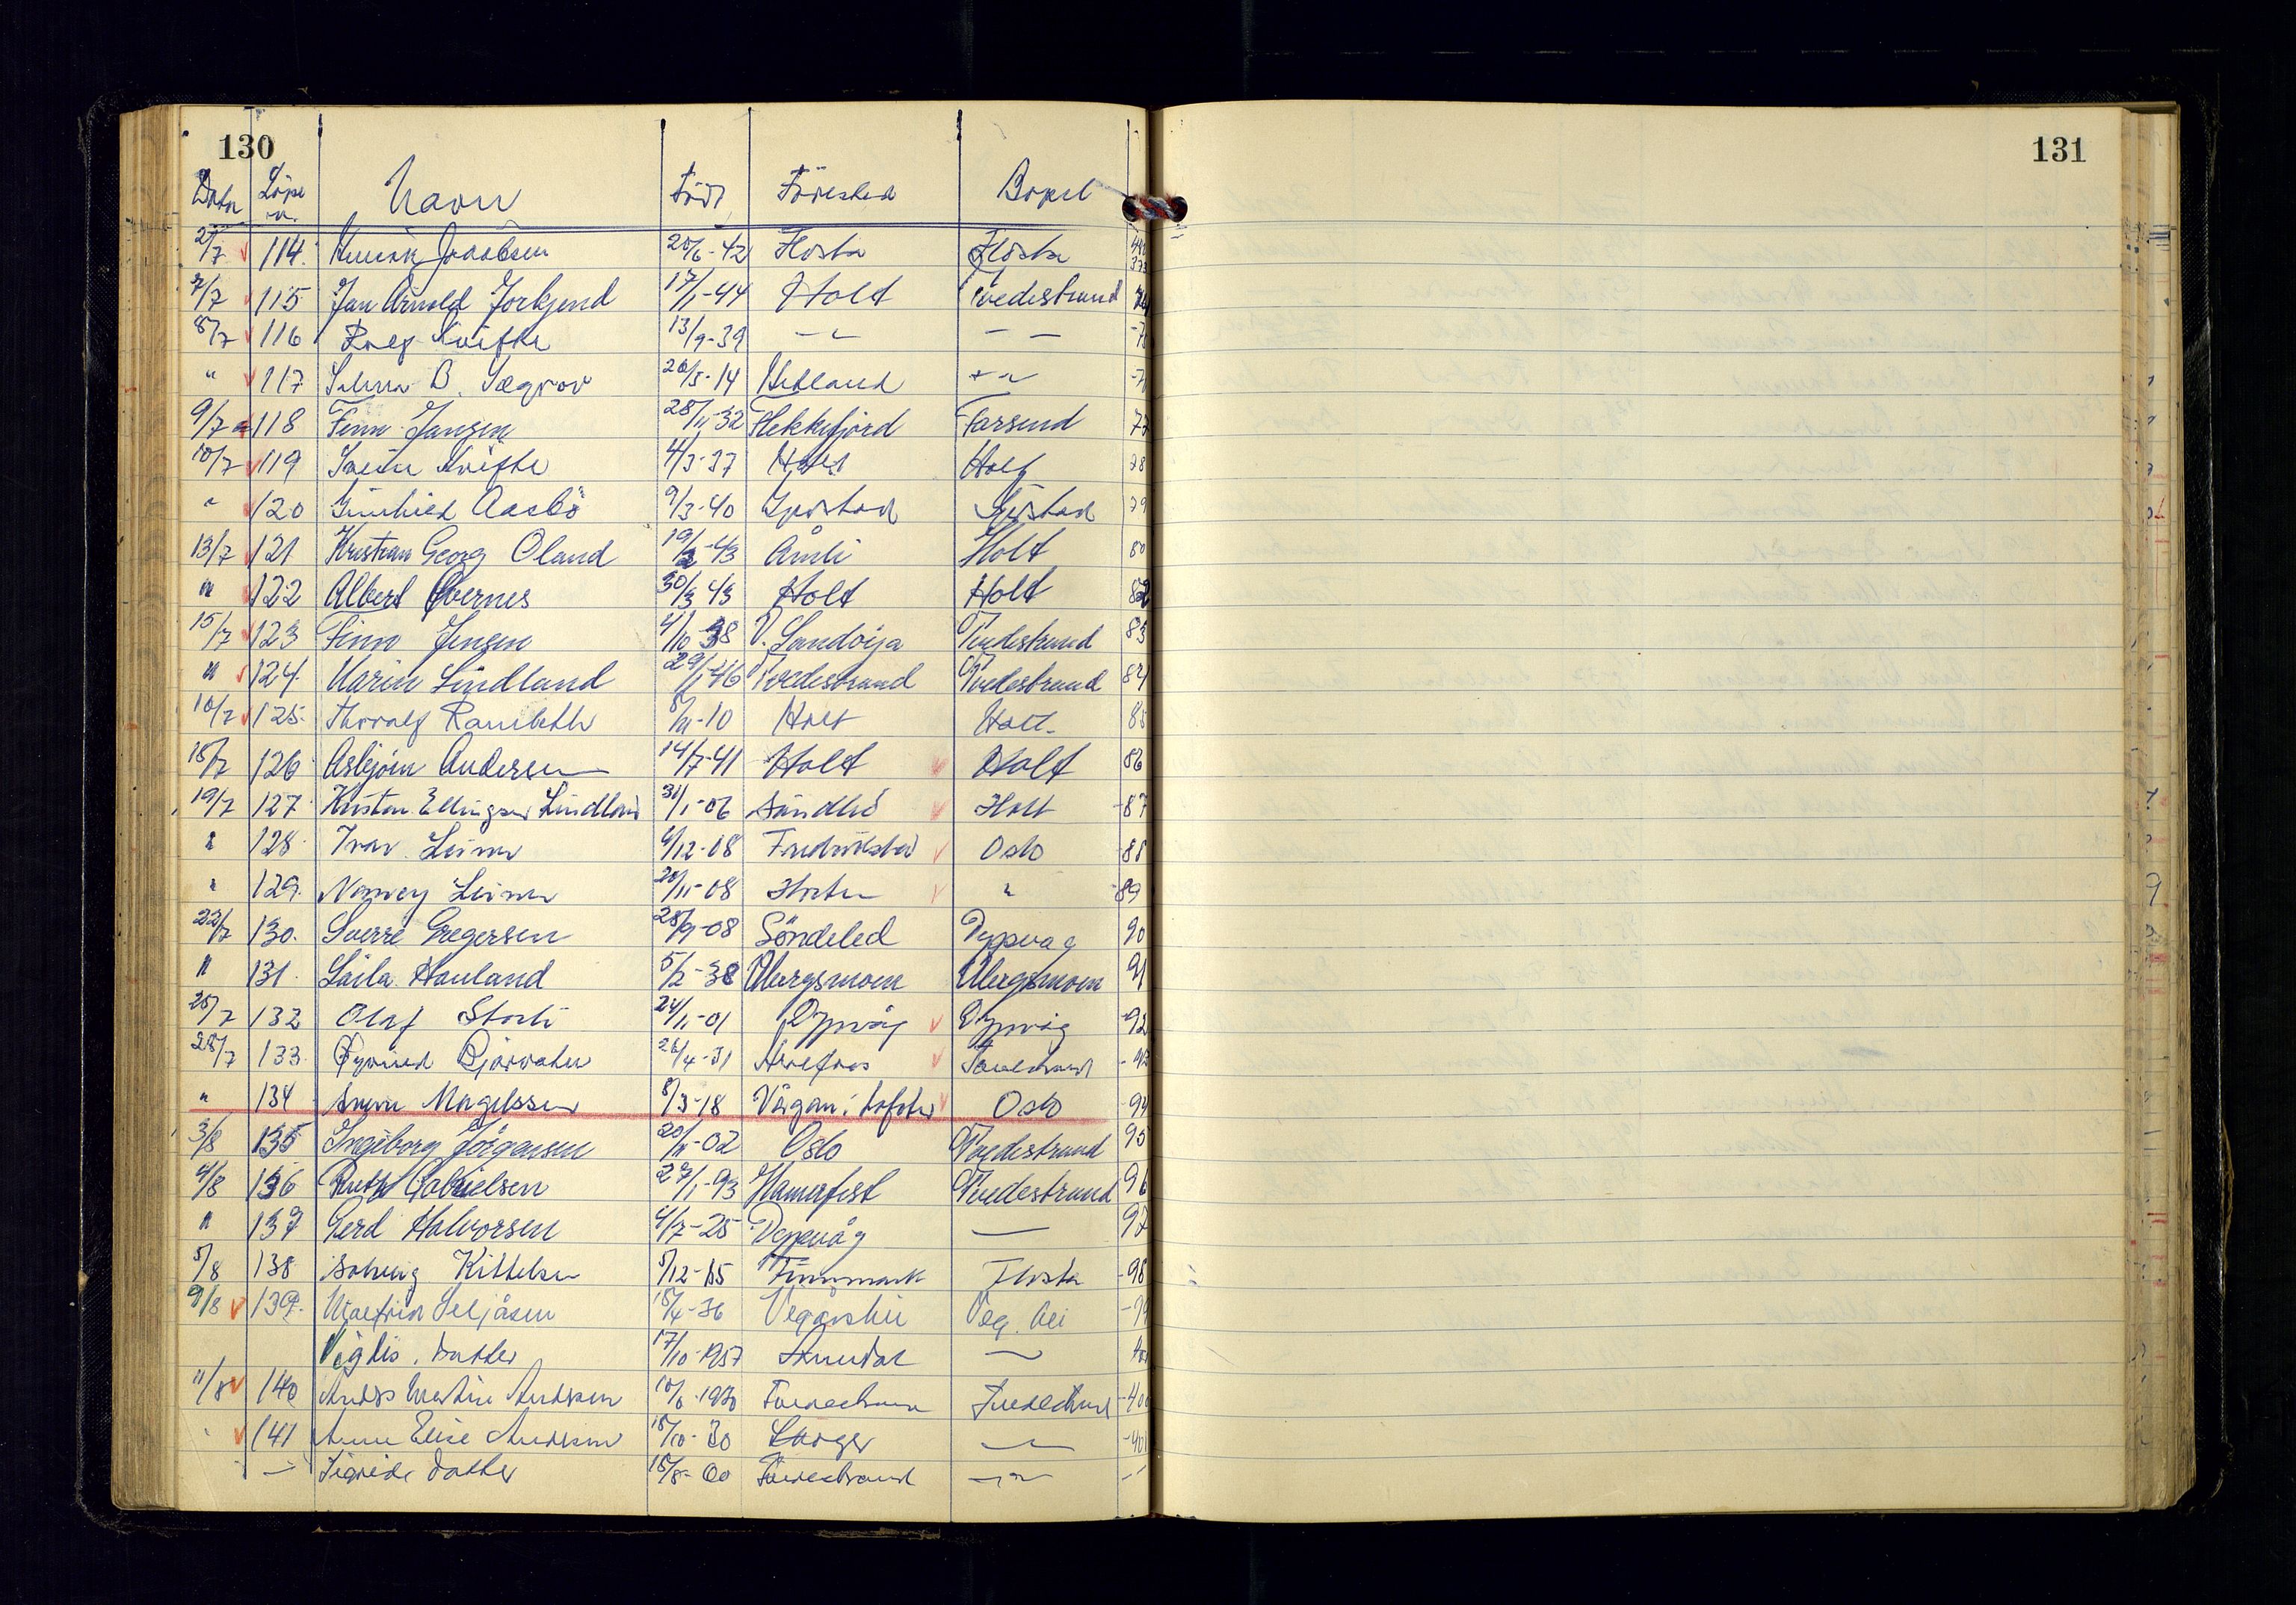 130
131
Dato Löpe nr. Navn Född Fødested Bopel
2/7 114. Henrik Jacobsen 20/6-42 Flosta Flosta
7/7 115 Jan Arnold Jorkjend 17/1-44 Holt Tvedestrand
8/7 116 Rolf Kvifte 13/9-39 — —
" 117 Selma B. Sægrov 20/5-14 Hetland
9/7 118 Finn Jansen 28/11-32 Flekkefjord Farsund 77
10/7 119 Svein Kvifte 4/3-37 Holt Holt 78
" 120 Gunhild Aasbö 9/3-40 Gjerstad Gjerstad 79
13/7 121 Kristian Georg Oland 19/2-43 Åmli Holt 80
" 122 Albert Øvernes 30/3 43 Holt Holt 82
15/7 123 Finn Jensen 4/10 38 V. Sandöija Tvedestrand 83
" 124. Karin Lindland 29/1-46 Tvedestrand Tvedestrand 84
16/7 125. Thoralf Ramleth -10 Holt Holt 85
18/7 126 Asbjörn Andersen 14/7-41 Holt Holt 86
19/7 127 Kristen Ellingsen Lindland 31/1-06 Söndled Holt -87
" 128. Ivar 4/12-08 Fredrikstad Oslo -88
" 129. 20/11-08 Horten " -89
22/7 130. Sverre Gregersen 28/9-08 Söndeled Dypvag 90
" 131. Laila Hauland 5/2-38 Ubergsmoen Ubergsmoen 91
25/7 132 Olaf 24/11-01 Dypvåg Dypvåg -92
28/7 133. Øyvind Bjorvatn 26/4-31 Tvedestrand
" 134 Magelssen 8/3-18 Vågan i Lofoten Oslo -94
3/8 135 Ingeborg Jörgensen 20/11-02 Oslo Tvedestrand 95
4/8 136 Ruth Gabrielsen 27/1-93 Hamerfest Tvedestrand 96
" 137 Gerd Halvorsen 4/7-25 Dypvåg — 97
5/8 138 Solveig Kittelsen 5/12-15 Finnmark Flosta -98
9/8 139. Seljåsen 18/4-36 Vegårshei Veg. hei -99
Vigdis, datter 17/10-1957 Arendal —
11/8 140 Anders Martin Andersen 10/6-1930 Tvedestrand Tvedestrand -400
" 141 Anne Elise Andersen 18/10-30 — -401
— datter 18/8-60 Tvedestrand —"—